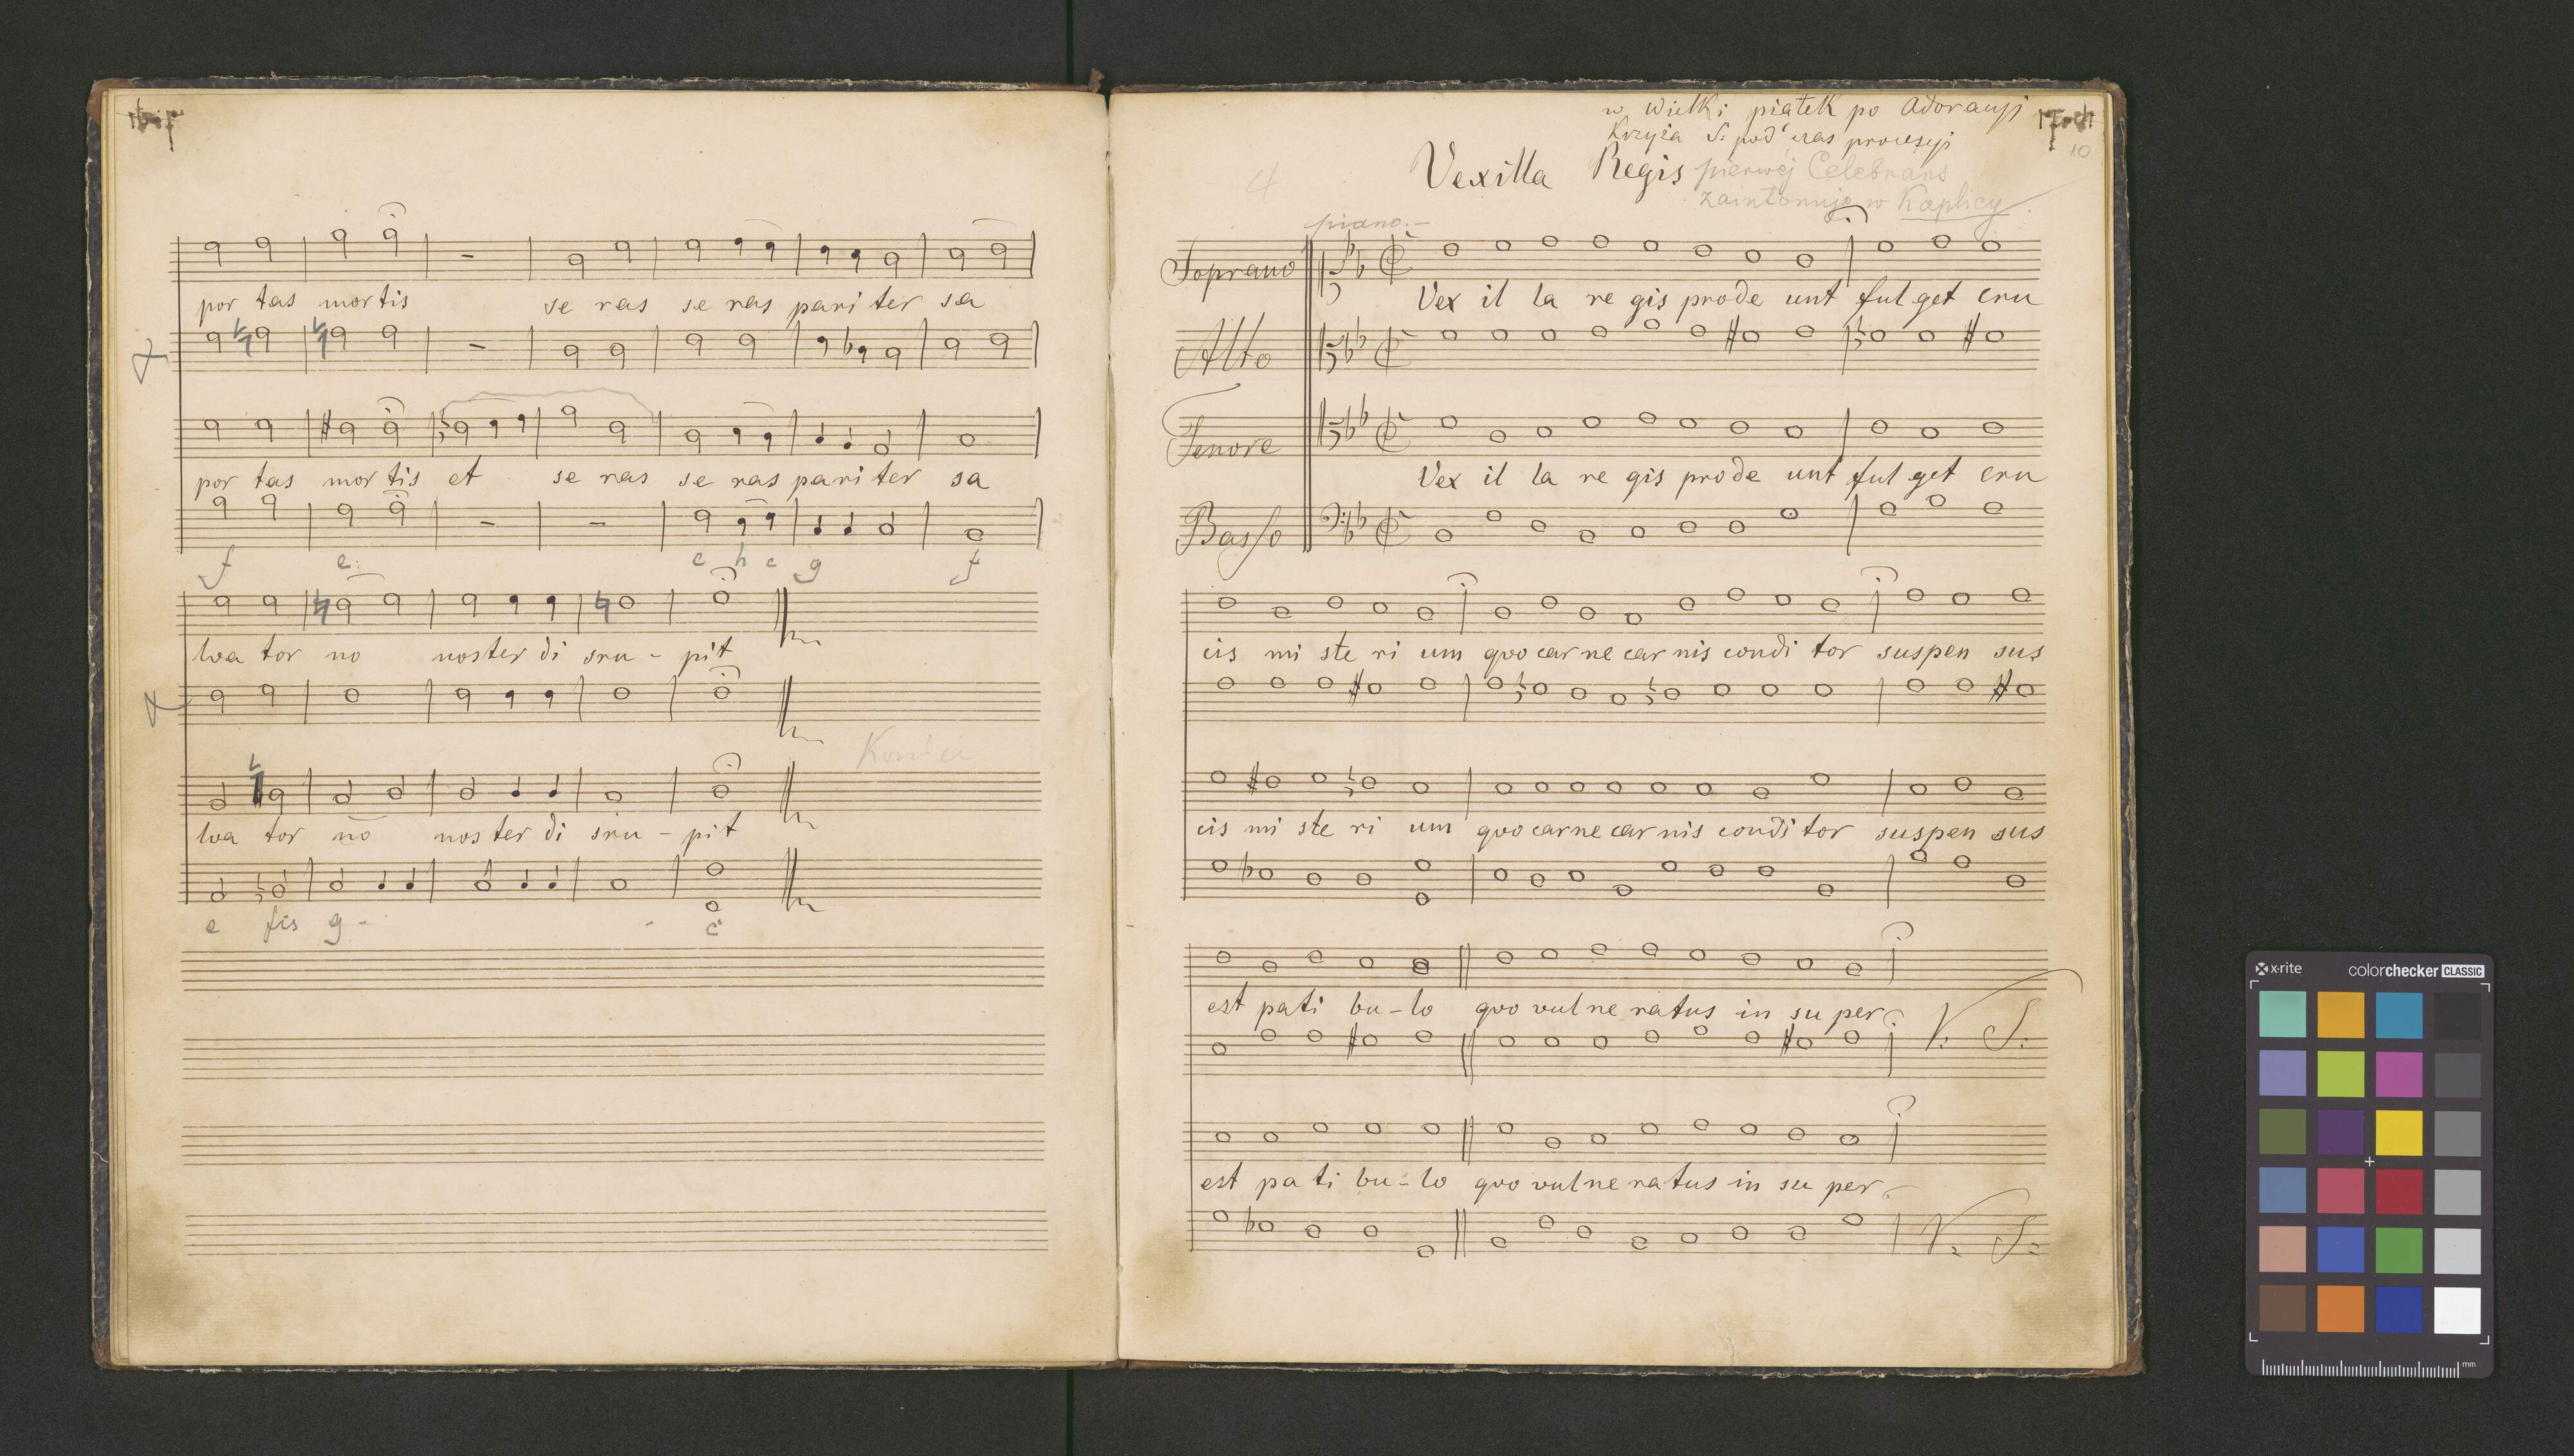 por tas mor tis se ras se ras pari ter sa
por tas mor tis et se ras se ras pari ter sa
f e c h c g f
lva tor no noster di sru - pit
Koniec
lva tor no nos ter di sru - pit
e fis g - - c
w Wielki piątek po Adoracyi
Krzyża S: pod czas procesyi
10
4
Vexilla Regis pierwej Celebrans
zaintonuje w Kaplicy
piano.-
Soprano
Vex il la re gis prode unt ful get cru
Alto
Tenore
Vex il la re gis prode unt ful get cru
Basso
cis mi ste ri um quo car ne car nis condi tor suspen sus
cis mi ste ri um quo carne car nis condi tor suspen sus
est pati bu - lo quo vul ne ratus in su per
V: S:
est pa ti bu - lo quo vul ne ra tus in su per
V: S:
x-rite colorchecker CLASSIC
mm